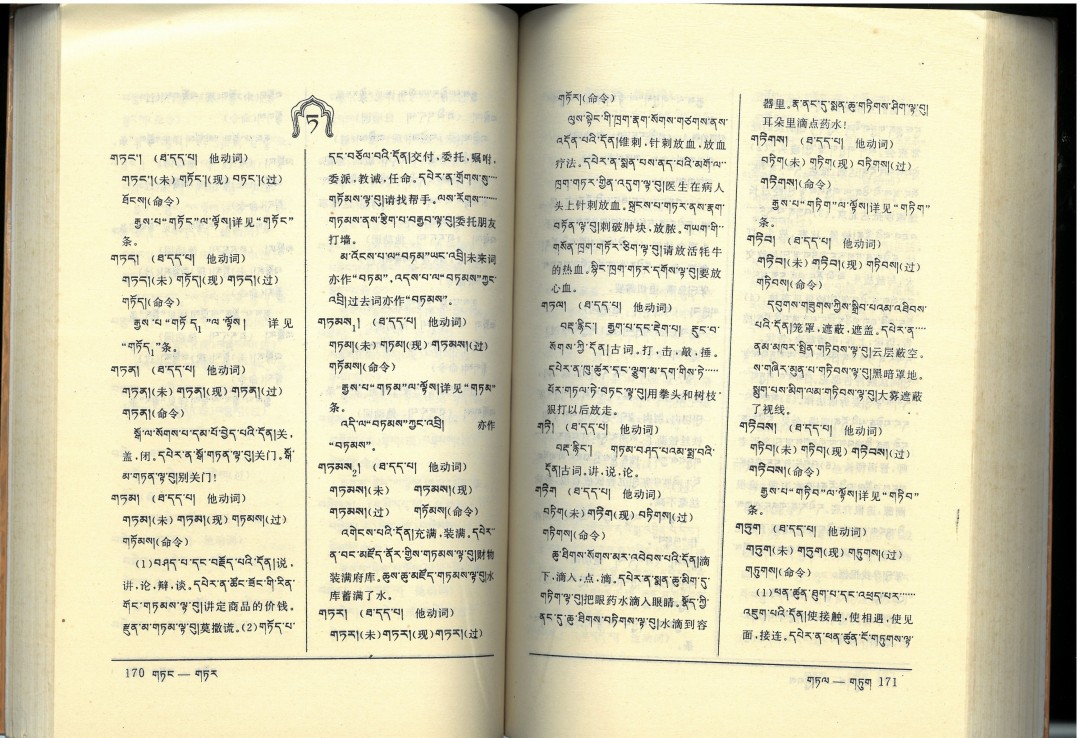 ཏ
གཏང༌། (ཐ་དད་པ། 他动词)
གཏང༌།(未) གཏོང༌།(现) བཏང༌།(过)
ཐོངས།(命令)
རྒྱས་པ་“གཏོང”ལ་ལྟོས།详见“གཏོང”
条。
གཏད། (ཐ་དད་པ། 他动词)
གཏད།(未) གཏོད།(现) གཏད།(过)
གཏོད།(命令)
རྒྱས་པ་“གཏོད₁”ལ་ལྟོས། 详见
“གཏོད₁”条。
གཏན། (ཐ་དད་པ། 他动词)
གཏན།(未) གཏན།(现) གཏན།(过)
གཏན།(命令)
སྒོ་ལ་སོགས་པ་དམ་པོ་བྱེད་པའི་དོན།关,
盖,闭。དཔེར་ན་སྒོ་གཏན་ལྟ་བུ།关门。སྒོ་
མ་གཏན་ལྟ་བུ།别关门!
གཏམ། (ཐ་དད་པ། 他动词)
གཏམ།(未) གཏམ།(现) གཏམས།(过)
གཏོམས།(命令)
(1)བཤད་པ་དང་བརྗོད་པའི་དོན།说,
讲,论,辩,谈。དཔེར་ན་ཚོང་ཐོང་གི་རིན་
གོང་གཏམས་ལྟ་བུ།讲定商品的价钱。
རྫུན་མ་གཏམ་ལྟ་བུ།莫撒谎。(2)གཏོད་པ་
དང་བཅོལ་བའི་དོན།交付,委托,嘱咐,
委派,教诫,任命。དཔེར་ན་གྲོགས་སུ་……
གཏོམས་ལྟ་བུ།请找帮手。ལས་རོགས་……
གཏམས་ནས་རྩིག་པ་བརྒྱབ་ལྟ་བུ།委托朋友
打墙。
མ་འོངས་པ་ལ་“བཏམ”ཡང་འབྲི།未来词
亦作“བཏམ”,འདས་པ་ལ་“བཏམས”ཀྱང་
འབྲི།过去词亦作“བཏམས”。
གཏམས₁། (ཐ་དད་པ། 他动词)
གཏམ།(未) གཏམ།(现) གཏམས།(过)
གཏོམས།(命令)
རྒྱས་པ་“གཏམ”ལ་ལྟོས།详见“གཏམ”
条。
འདི་ལ་“བཏམས”ཀྱང་འབྲི། 亦作
“བཏམས”。
གཏམས₂། (ཐ་དད་པ། 他动词)
གཏམས།(未) གཏམས།(现)
གཏམས།(过) གཏོམས།(命令)
འགེངས་པའི་དོན།充满,装满。དཔེར་
ན་བང་མཛོད་ནོར་གྱིས་གཏམས་ལྟ་བུ།财物
装满府库。ཆུས་ཆུ་མཛོད་གཏམས་ལྟ་བུ།水
库蓄满了水。
གཏར། (ཐ་དད་པ། 他动词)
གཏར།(未) གཏར།(现) གཏར།(过)
170 གཏང — གཏར
གཏོར།(命令)
ལུས་སྟེང་གི་ཁྲག་རྣག་སོགས་གཙགས་ནས་
འདོན་པའི་དོན།锥刺,针刺放血,放血
疗法。དཔེར་ན་སྨན་པས་ནད་པའི་མགོ་ལ་..
ཁྲག་གཏར་གྱིན་འདུག་ལྟ་བུ།医生在病人
头上针刺放血。སྐྲངས་པ་གཏར་ནས་རྣག་
བཏོན་ལྟ་བུ།刺破肿块,放脓。གཡག་གི་..
གསོན་ཁྲག་གཏོར་ཅིག་ལྟ་བུ།请放活牦牛
的热血。སྙིང་ཁྲག་གཏར་དགོས་ལྟ་བུ།要放
心血。
གཏལ། (ཐ་དད་པ། 他动词)
བརྡ་རྙིང༌། རྒྱག་པ་དང་རྡེག་པ། རྡུང་བ་
སོགས་ཀྱི་དོན།古词。打,击,敲,捶。
དཔེར་ན་ཁུ་ཚུར་དང་ལྕུག་མ་དག་གིས་ཏེ་……
ཕོར་གཏལ་ཏེ་བཏང་ལྟ་བུ།用拳头和树枝
狠打以后放走。
གཏི། (ཐ་དད་པ། 他动词)
བརྡ་རྙིང༌། གཏམ་བཤད་པའམ་སྨྲ་བའི་
དོན།古词。讲,说,论。
གཏིག (ཐ་དད་པ། 他动词)
བཏིག(未) གཏིག(现) བཏིགས།(过)
གཏིགས།(命令)
ཆུ་ཐིགས་སོགས་མར་འབེབས་པའི་དོན།滴
下,滴入,点,滴。དཔེར་ན་སྨན་ཆུ་མིག་ཏུ་
གཏིག་ལྟ་བུ།把眼药水滴入眼睛。སྣོད་ཀྱི་
ནང་དུ་ཆུ་ཐིགས་བཏིགས་ལྟ་བུ།水滴到容
器里。རྣ་ནང་དུ་སྨན་ཆུ་གཏིགས་ཤིག་ལྟ་བུ།
耳朵里滴点药水!
གཏིགས། (ཐ་དད་པ། 他动词)
བཏིག(未) གཏིག(现) བཏིགས།(过)
གཏིགས།(命令)
རྒྱས་པ་“གཏིག”ལ་ལྟོས།详见“གཏིག”
条。
གཏིབ། (ཐ་དད་པ། 他动词)
གཏིབ།(未) གཏིབ།(现) གཏིབས།(过)
གཏིབས།(命令)
དབུགས་གཟུགས་ཀྱིས་སྒྲིབ་པའམ་འཐིབས་
པའི་དོན།笼罩,遮蔽,遮盖。དཔེར་ན་……
ནམ་མཁར་སྤྲིན་གཏིབས་ལྟ་བུ།云层蔽空。
ས་གཞིར་མུན་པ་གཏིབས་ལྟ་བུ།黑暗罩地。
སྨུག་པས་མིག་ལམ་གཏིབས་ལྟ་བུ།大雾遮蔽
了视线。
གཏིབས། (ཐ་དད་པ། 他动词)
གཏིབ།(未) གཏིབ།(现) གཏིབས།(过)
གཏིབས།(命令)
རྒྱས་པ་“གཏིབ”ལ་ལྟོས།详见“གཏིབ”
条。
གཏུག (ཐ་དད་པ། 他动词)
གཏུག(未) གཏུག(现) གཏུགས།(过)
གཏུགས།(命令)
(1)ཕན་ཚུན་ཐུག་པ་དང་འཕྲད་པར་……
འཇུག་པའི་དོན།使接触,使相遇,使见
面,接连。དཔེར་ན་ཕན་ཚུན་ངོ་གཏུགས་ལྟ་
གཏལ — གཏུག 171